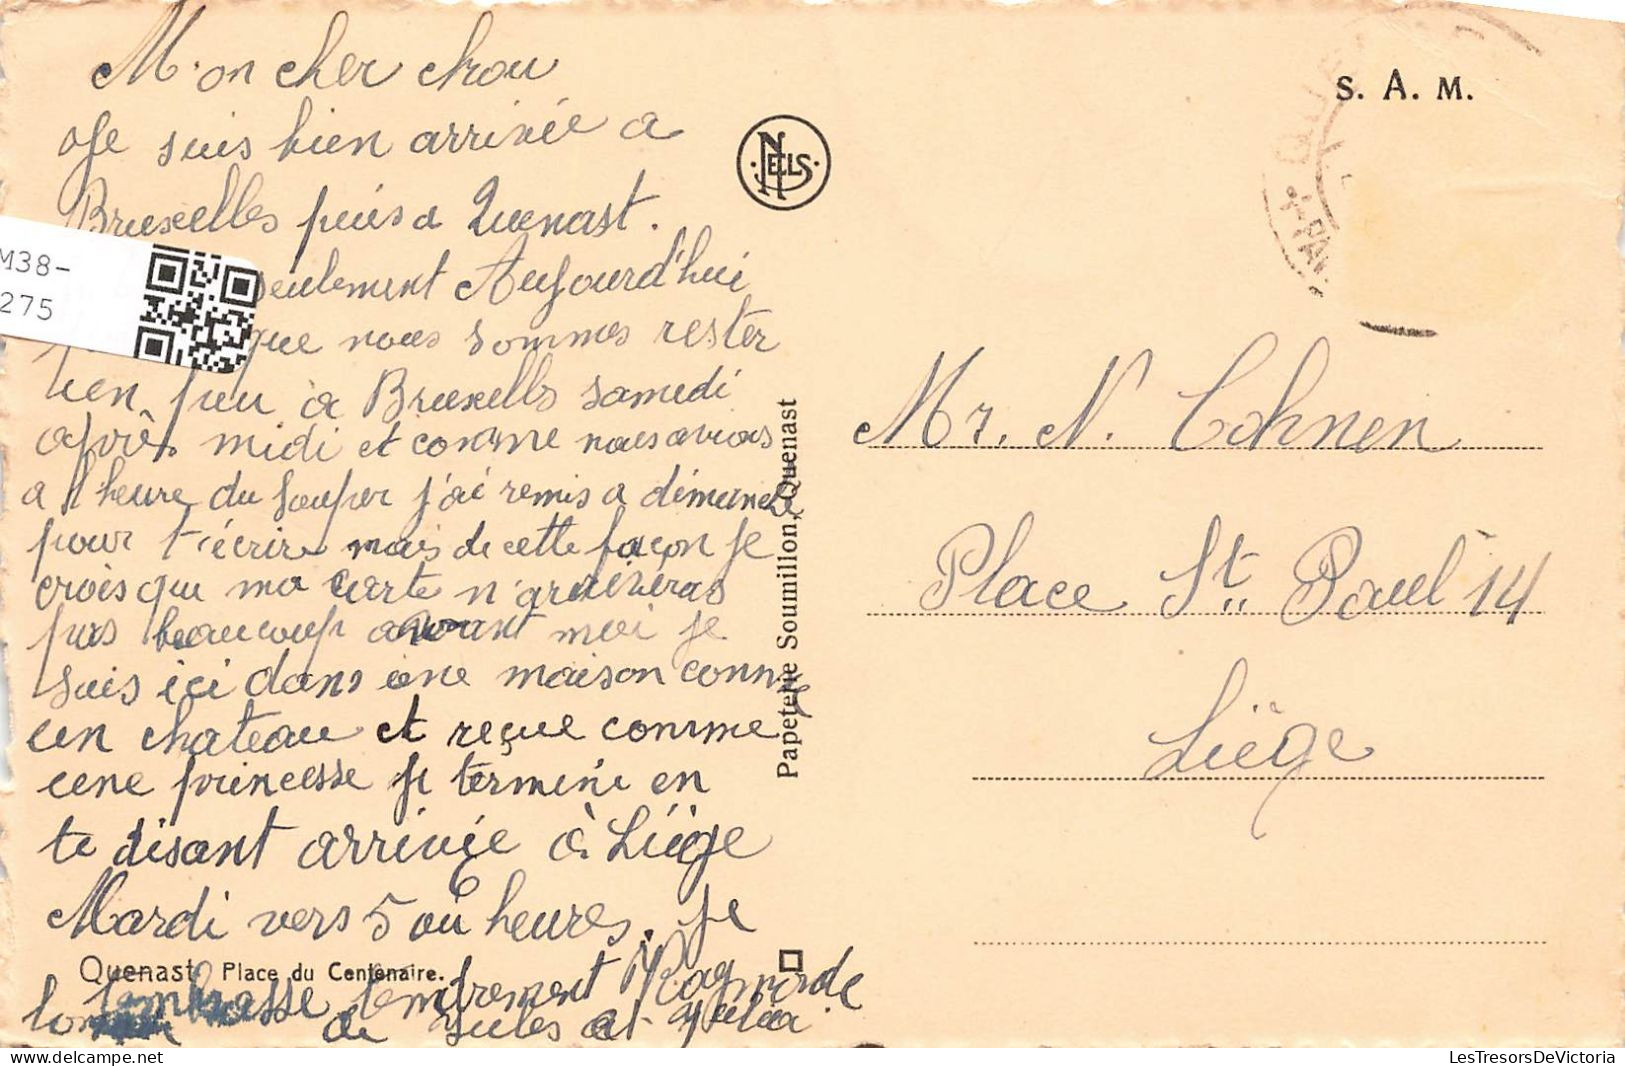 Mon cher chou
Je suis bien arrivée a
Bruxelles puis a Quenast.
seulement Aujourd'hui
que nous sommes rester
ien peu à Bruxelles samedi
après midi et comme nous avions
a l'heure du souper j'ai remis a dimanche
pour t'écrire mais de cette façon je
crois que ma carte n'arriveras
pas beaucoup avant moi je
suis ici dans une maison comme
un chateau et reçue comme
une princesse je termine en
te disant arrivée à Liége
Mardi vers 5 ou 6 heures. Je
t'embrasse tendrement Raymonde
de Jules et Julia
Quenast Place du Centenaire.
NELS
Papeterie Soumillon, Quenast
S. A. M.
Mr. N. Cohnen
Place St. Paul 14
Liège
M38-
275
LesTresorsDeVictoria
delcampe.net